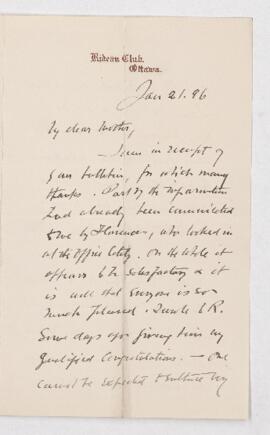 Rideau Club,
Ottawa.
Jan 21. 96
My dear Mother,
I am in receipt of
your bulletin, for which many
thanks. Part of the information
had already been communicated
to me by Florence, who looked in
at the Office today. On the whole it
appears to be satisfactory & it
is well that everyone is so
much pleased. I wrote to R.
some days ago giving him my
qualified congratulations. — One
cannot be expected to